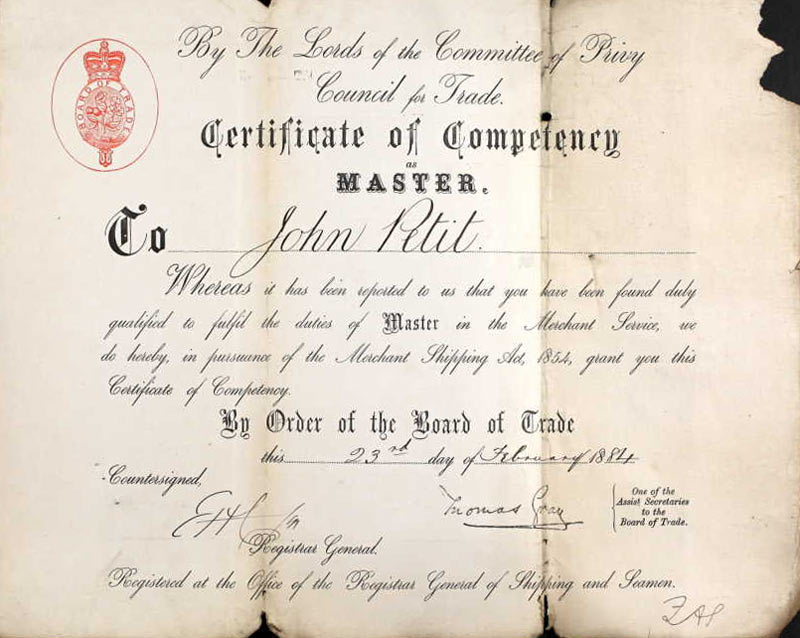 BOARD OF TRADE
By The Lords of the Committee of Privy
Council for Trade.
Certificate of Competency
as
MASTER.
To John Petit.
Whereas it has been reported to us that you have been found duly
qualified to fulfil the duties of Master in the Merchant Service, we
do hereby, in pursuance of the Merchant Shipping Act, 1854, grant you this
Certificate of Competency.
By Order of the Board of Trade
this 23rd day of February 1884
Countersigned,
Thomas Gray
One of the
Assist Secretaries
to the
Board of Trade.
Registrar General.
Registered at the Office of the Registrar General of Shipping and Seamen.